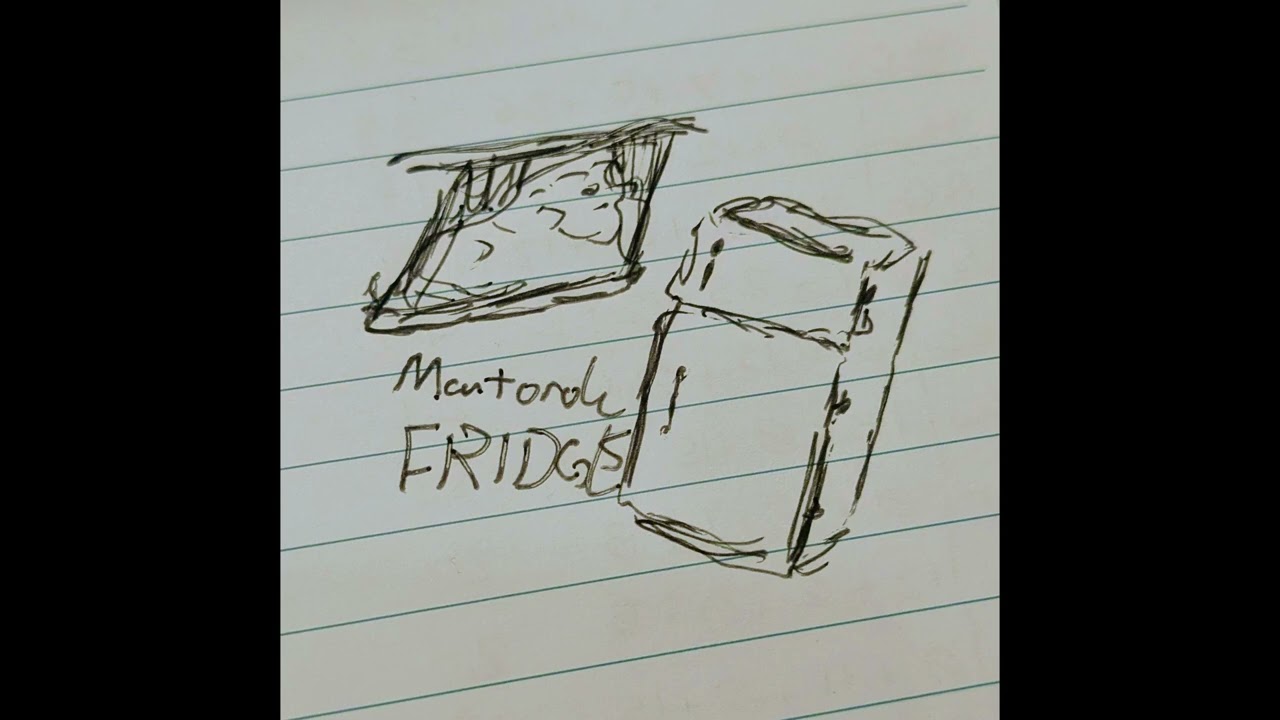 Mantorok
FRIDGES